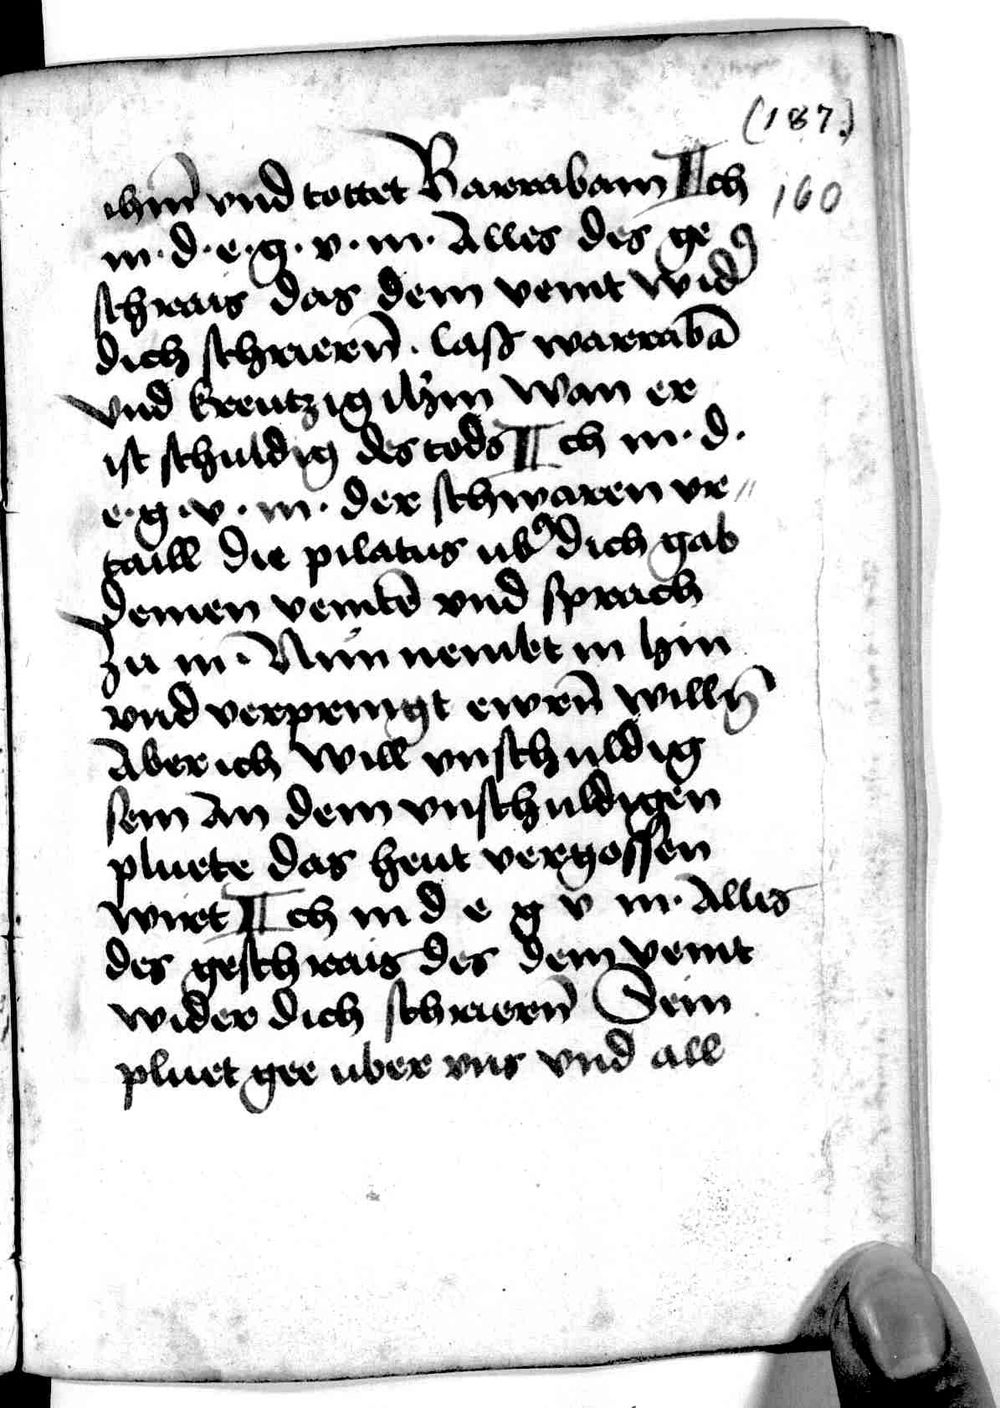 (187.)
160
ihm̄ vnd tottet Barrabam Ich
m · d · e · g · v · m · Alles des ge
schrais das dein veint wid᾽
dich schriern̄ · lasſ warrabā
vnd kreutzig ihm wan er
ist schuldig des tods Ich m · d ·
e · g · v · m · der schwaren vr〃
taill die pilatus ub᾽ dich gab
deinen veintē vnd sprach
zu in · Nun nembt in hin
vnd verpringt ewrn̄ willn̄
Aber ich will vnschuldig
sein An dem vnschuldigen
pluete das heut vergossen
wirt Ich m d e g v m · Alles
des geschrais des dein veint
wider dich schriern̄ Sein
pluet gee uber vns vnd all